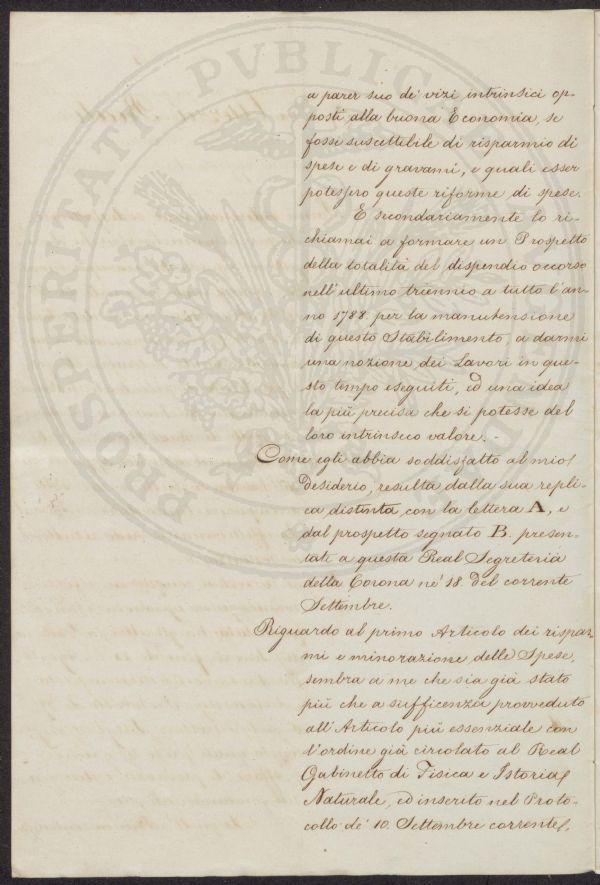 a parer suo de' vizi intrinsici op-
posti alla buona Economia, se
fosse suscettibile di risparmio di
spese e di gravami, e quali esser
potessero queste riforme di spese.
E secondariamente lo ri-
chiamai a formare un Prospetto
della totalità del dispendio occorso
nell'ultimo triennio a tutto l'an-
no 1788. per la manutensione
di questo Stabilimento, a darmi
una nozione dei Lavori in que-
sto tempo eseguiti, ed una idea
la più precisa che si potesse del
loro intrinseco valore. -
Come egli abbia soddisfatto al mio
desiderio, resulta dalla sua repli-
ca distinta con la lettera A, e
dal prospetto segnato B. presen-
tati a questa Real Segreteria
della Corona ne' 18. del corrente
Settembre.
Riguardo al primo Articolo dei rispar-
mi e minorazione delle Spese,
sembra a me che sia già stato
più che a sufficenza provveduto
all'Articolo più essenziale con
l'ordine già circolato al Real
Gabinetto di Fisica e Istoria
Naturale, ed inscrito nel Proto-
collo de' 10. Settembre corrente,
PROSPERITATI PUBLICAE